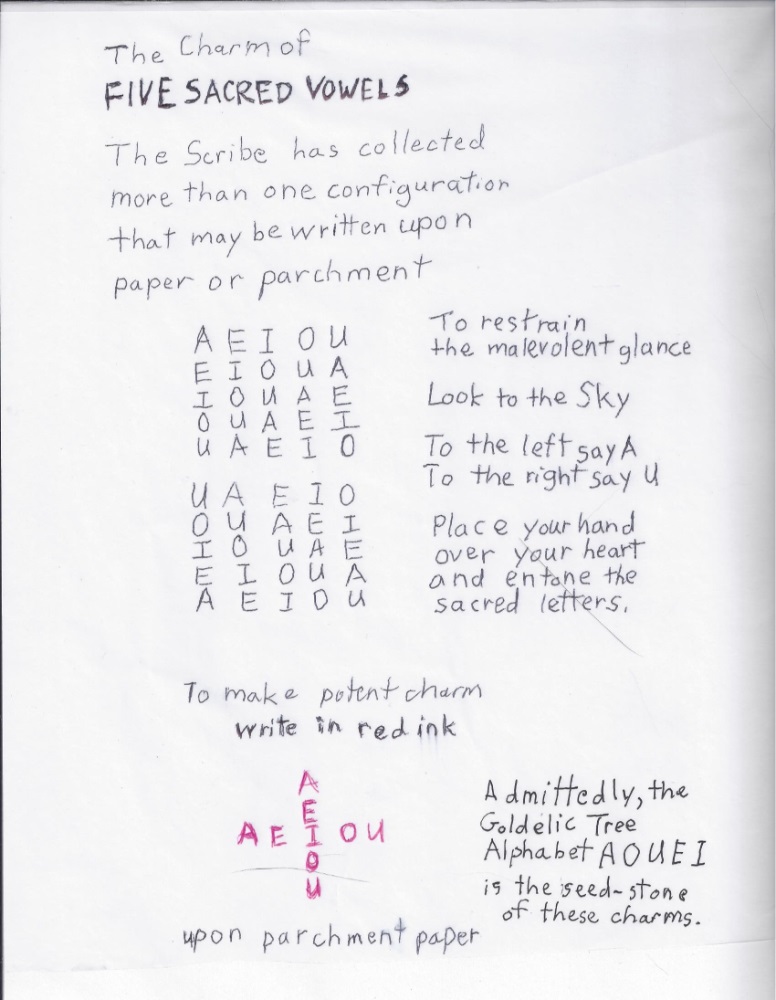 The Charm of
FIVE SACRED VOWELS
The Scribe has collected
more than one configuration
that may be written upon
paper or parchment
A E I O U
E I O U A
I O U A E
O U A E I
U A E I O
To restrain
the malevolent glance
Look to the Sky
To the left say A
To the right say U
U A E I O
O U A E I
I O U A E
E I O U A
A E I O U
Place your hand
over your heart
and entone the
sacred letters.
To make potent charm
write in red ink
A
E
A E I O U
O
U
Admittedly, the
Goldelic Tree
Alphabet A O U E I
is the seed-stone
of these charms.
upon parchment paper